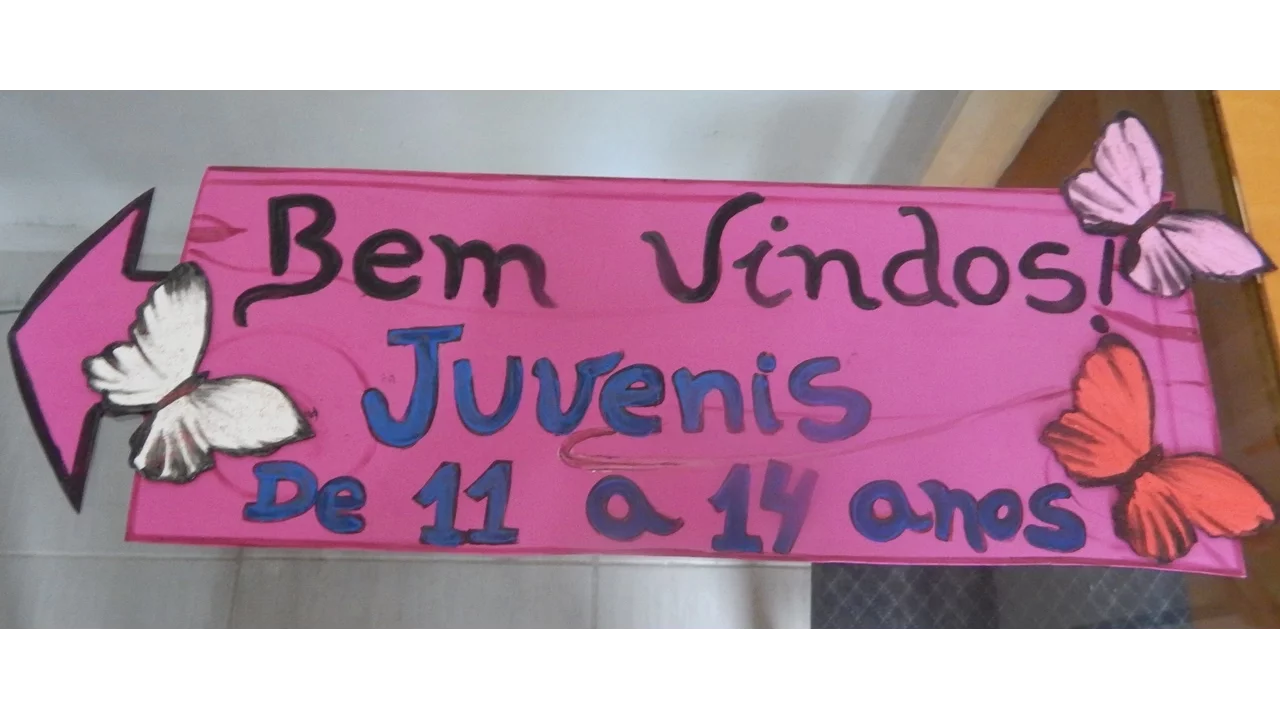 Bem Vindos!
Juvenis
De 11 a 14 anos